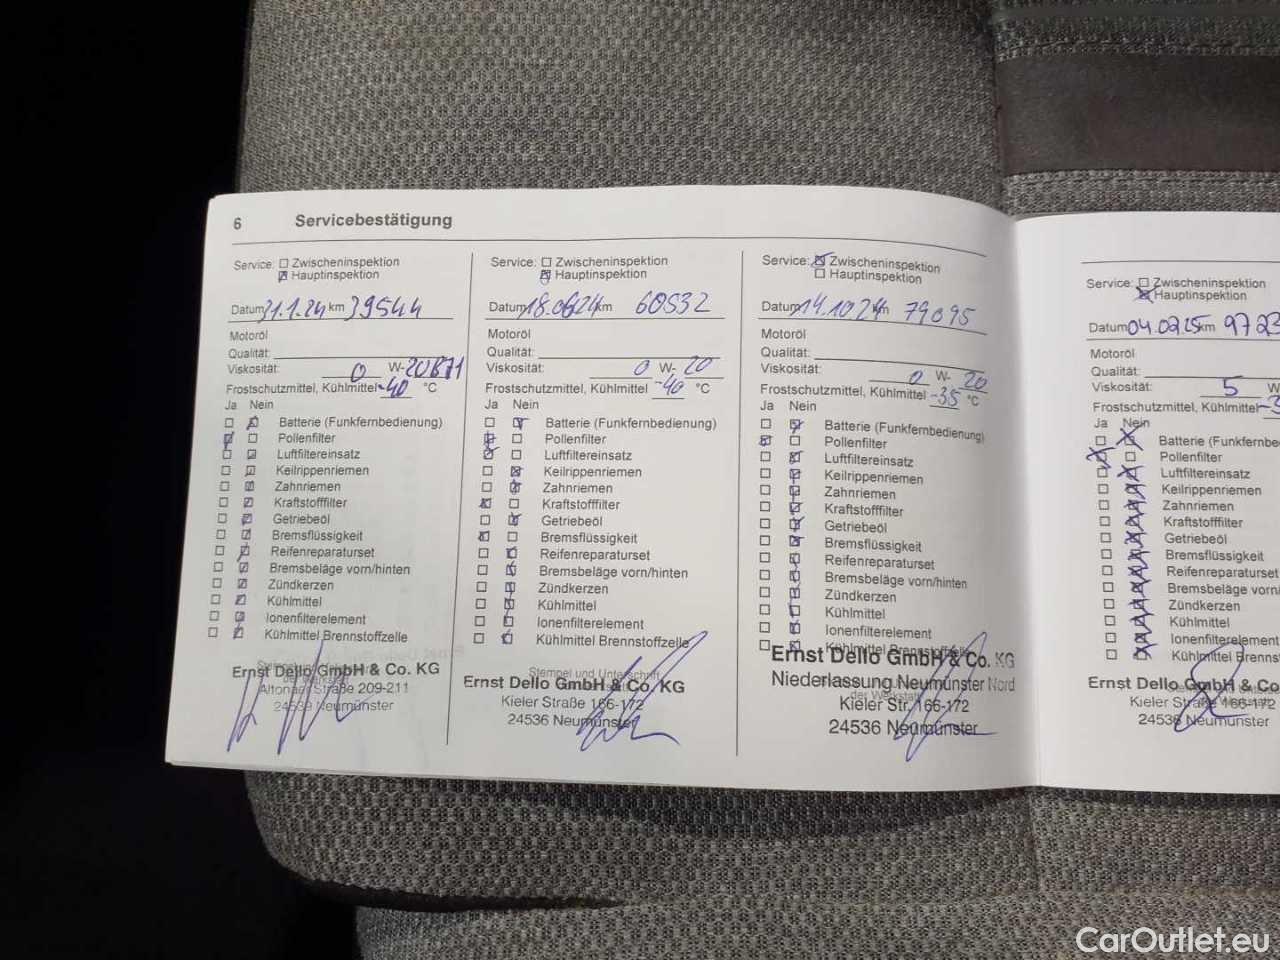 6 Servicebestätigung
Service: Zwischeninspektion
Hauptinspektion
Datum 31.1.24 km 39544
Motoröl
Qualität:
Viskosität: 0 W-20 B71
Frostschutzmittel, Kühlmittel -40 °C
Ja Nein
Batterie (Funkfernbedienung)
Pollenfilter
Luftfiltereinsatz
Keilrippenriemen
Zahnriemen
Kraftstofffilter
Getriebeöl
Bremsflüssigkeit
Reifenreparaturset
Bremsbeläge vorn/hinten
Zündkerzen
Kühlmittel
Ionenfilterelement
Kühlmittel Brennstoffzelle
Ernst Dello GmbH & Co. KG
Altonaer Straße 209-211
24539 Neumünster
Service: Zwischeninspektion
Hauptinspektion
Datum 18.0624 km 60532
Motoröl
Qualität:
Viskosität: 0 W-20
Frostschutzmittel, Kühlmittel -40 °C
Ja Nein
Batterie (Funkfernbedienung)
Pollenfilter
Luftfiltereinsatz
Keilrippenriemen
Zahnriemen
Kraftstofffilter
Getriebeöl
Bremsflüssigkeit
Reifenreparaturset
Bremsbeläge vorn/hinten
Zündkerzen
Kühlmittel
Ionenfilterelement
Kühlmittel Brennstoffzelle
Stempel und Unterschrift
Ernst Dello GmbH & Co. KG
Kieler Straße 166-172
24536 Neumünster
Service: Zwischeninspektion
Hauptinspektion
Datum 14.1024 km 79095
Motoröl
Qualität:
Viskosität: 0 W-20
Frostschutzmittel, Kühlmittel -35 °C
Ja Nein
Batterie (Funkfernbedienung)
Pollenfilter
Luftfiltereinsatz
Keilrippenriemen
Zahnriemen
Kraftstofffilter
Getriebeöl
Bremsflüssigkeit
Reifenreparaturset
Bremsbeläge vorn/hinten
Zündkerzen
Kühlmittel
Ionenfilterelement
Kühlmittel Brennstoffzelle
Ernst Dello GmbH & Co. KG
Niederlassung Neumünster Nord
der Werkstatt
Kieler Str. 166-172
24536 Neumünster
Service: Zwischeninspektion
Hauptinspektion
Datum 04.02.25 km 9723
Motoröl
Qualität:
Viskosität: 5 W
Frostschutzmittel, Kühlmittel -3
Ja Nein
Batterie (Funkfernbe
Pollenfilter
Luftfiltereinsatz
Keilrippenriemen
Zahnriemen
Kraftstofffilter
Getriebeöl
Bremsflüssigkeit
Reifenreparaturset
Bremsbeläge vorn
Zündkerzen
Kühlmittel
Ionenfilterelement
Kühlmittel Brenns
Ernst Dello GmbH & Co
Kieler Straße 166-172
24536 Neumünster
CarOutlet.eu